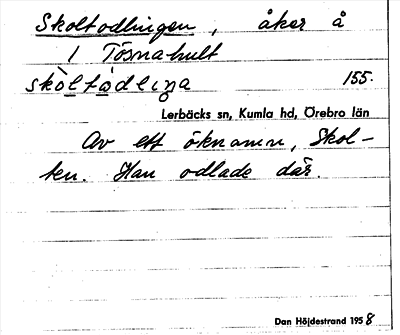 Skoltodlingen, åker å
1 Tösnahult
skòltòdliŋa 155.
Lerbäcks sn, Kumla hd, Örebro län
Av ett öknamn, Skol-
ten. Han odlade där.
Dan Höjdestrand 1958